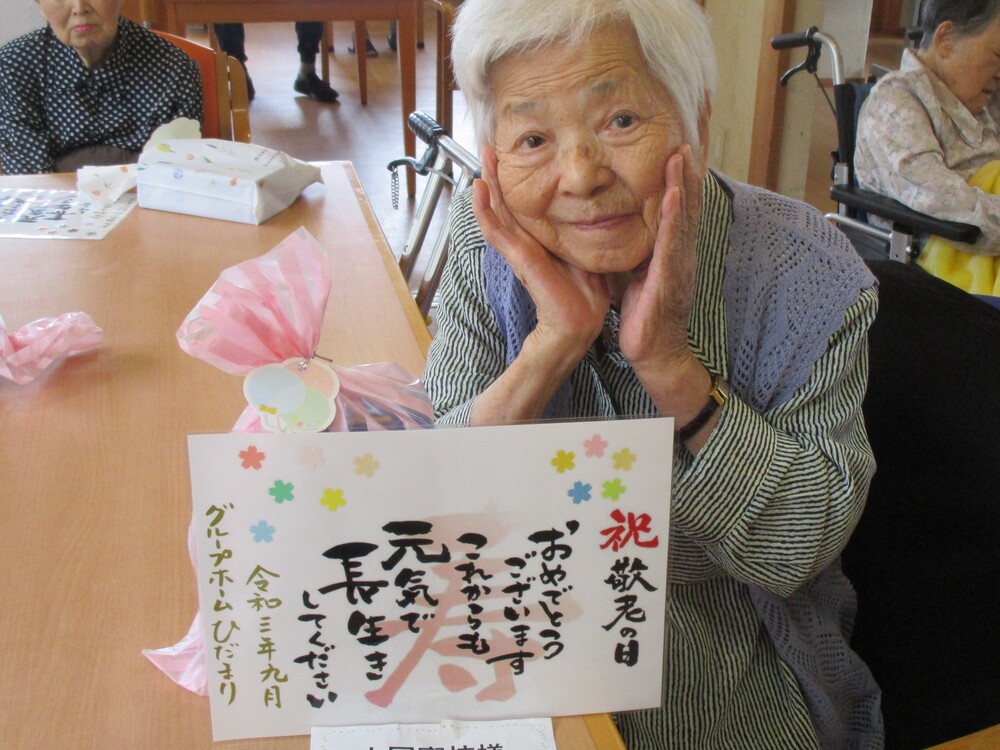 祝 敬老の日
おめでとう
ございます
これからも
元気で
長生き
してください
寿
令和三年九月
グループホームひだまり